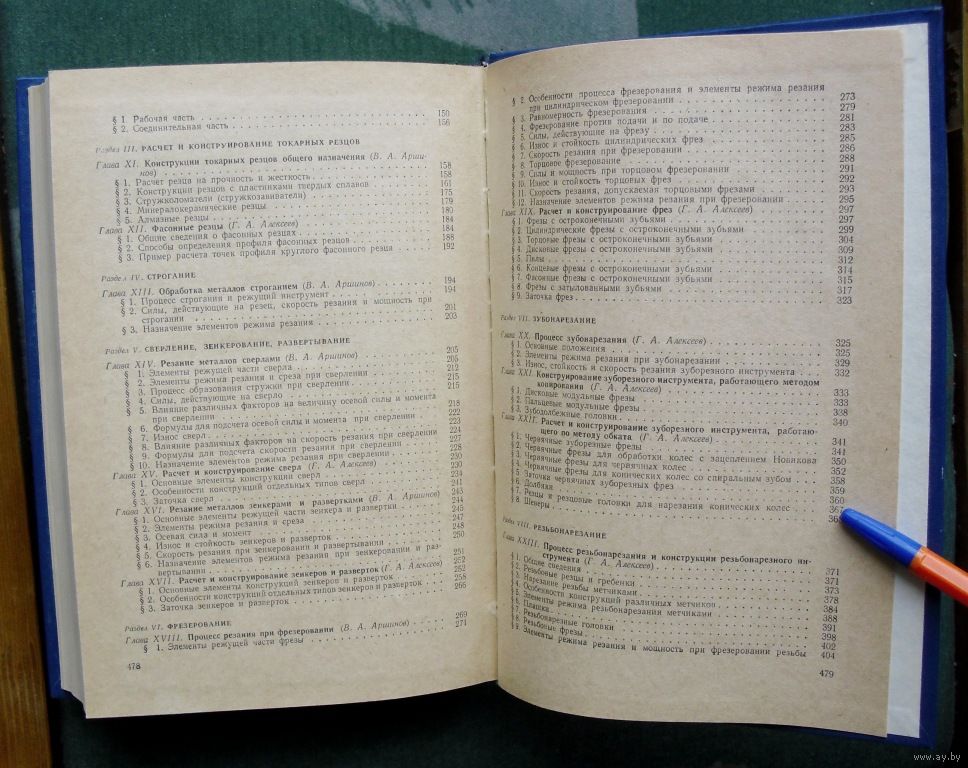 § 1 Рабочая часть 150
§ 2. Соединительная часть 156
Раздел III. РАСЧЕТ И КОНСТРУИРОВАНИЕ ТОКАРНЫХ РЕЗЦОВ
Глава XI. Конструкции токарных резцов общего назначения (В. А. Арши-
нов) 158
§ 1. Расчет резца на прочность и жесткость 158
§ 2. Конструкции резцов с пластинками твердых сплавов 161
§ 3. Стружколоматели (стружкозавиватели) 175
§ 4. Минералокерамические резцы 179
§ 5. Алмазные резцы 180
Глава XII. Фасонные резцы (Г. А. Алексеев) 184
§ 1. Общие сведения о фасонных резцах 184
§ 2. Способы определения профиля фасонных резцов 188
§ 3. Пример расчета точек профиля круглого фасонного резца 192
Раздел IV. СТРОГАНИЕ
Глава XIII. Обработка металлов строганием (В. А. Аршинов) 194
§ 1. Процесс строгания и режущий инструмент 194
§ 2. Силы, действующие на резец, скорость резания и мощность при
строгании 201
§ 3. Назначение элементов режима резания 203
Раздел V. СВЕРЛЕНИЕ, ЗЕНКЕРОВАНИЕ, РАЗВЕРТЫВАНИЕ
Глава XIV. Резание металлов сверлами (В. А. Аршинов) 205
§ 1. Элементы режущей части сверла 205
§ 2. Элементы режима резания и среза при сверлении 212
§ 3. Процесс образования стружки при сверлении 215
§ 4. Силы, действующие на сверло 215
§ 5. Влияние различных факторов на величину осевой силы и момента
при сверлении 218
§ 6. Формулы для подсчета осевой силы и момента при сверлении 222
§ 7. Износ сверл 223
§ 8. Влияние различных факторов на скорость резания при сверлении 224
§ 9. Формулы для подсчета скорости резания при сверлении 227
§ 10. Назначение элементов режима резания при сверлении 228
Глава XV. Расчет и конструирование сверл (Г. А. Алексеев) 230
§ 1. Основные элементы конструкции сверл 230
§ 2. Особенности конструкций отдельных типов сверл 234
§ 3. Заточка сверл 241
Глава XVI. Резание металлов зенкерами и развертками (В. А. Аршинов) 243
§ 1. Основные элементы режущей части зенкера и развертки 244
§ 2. Элементы режима резания и среза 245
§ 3. Осевая сила и момент 247
§ 4. Износ и стойкость зенкеров и разверток 248
§ 5. Скорость резания при зенкеровании и развертывании 250
§ 6. Назначение элементов режима резания при зенкеровании и раз-
вертывании 251
Глава XVII. Расчет и конструирование зенкеров и разверток (Г. А. Алексеев) 252
§ 1. Основные элементы конструкций зенкеров и разверток 252
§ 2. Особенности конструкций отдельных типов зенкеров и разверток 258
§ 3. Заточка зенкеров и разверток 265
Раздел VI. ФРЕЗЕРОВАНИЕ
Глава XVIII. Процесс резания при фрезеровании (В. А. Аршинов) 269
§ 1. Элементы режущей части фрезы 271
478
§ 2. Особенности процесса фрезерования и элементы режима резания
при цилиндрическом фрезеровании 273
§ 3. Равномерность фрезерования 279
§ 4. Фрезерование против подачи и по подаче 281
§ 5. Силы, действующие на фрезу 283
§ 6. Износ и стойкость цилиндрических фрез 285
§ 7. Скорость резания при фрезеровании 286
§ 8. Торцовое фрезерование 288
§ 9. Силы и мощность при торцовом фрезеровании 291
§ 10. Износ и стойкость торцовых фрез 292
§ 11. Скорость резания, допускаемая торцовыми фрезами 293
§ 12. Назначение элементов режима резания при фрезеровании 295
Глава XIX. Расчет и конструирование фрез (Г. А. Алексеев) 297
§ 1. Фрезы с остроконечными зубьями 297
§ 2. Цилиндрические фрезы с остроконечными зубьями 299
§ 3. Торцовые фрезы с остроконечными зубьями 304
§ 4. Дисковые фрезы с остроконечными зубьями 309
§ 5. Пилы 312
§ 6. Концевые фрезы с остроконечными зубьями 314
§ 7. Фасонные фрезы с остроконечными зубьями 315
§ 8. Фрезы с затылованными зубьями 317
§ 9. Заточка фрез 323
Раздел VII. ЗУБОНАРЕЗАНИЕ
Глава XX. Процесс зубонарезания (Г. А. Алексеев) 325
§ 1. Основные положения 325
§ 2. Элементы режима резания при зубонарезании 329
§ 3. Износ, стойкость и скорость резания зуборезного инструмента 332
Глава XXI. Конструирование зуборезного инструмента, работающего методом
копирования (Г. А. Алексеев) 333
§ 1. Дисковые модульные фрезы 333
§ 2. Пальцевые модульные фрезы 338
§ 3. Зубодолбежные головки 340
Глава XXII. Расчет и конструирование зуборезного инструмента, работаю-
щего по методу обката (Г. А. Алексеев) 341
§ 1. Червячные зуборезные фрезы 341
§ 2. Червячные фрезы для обработки колес с зацеплением Новикова 350
§ 3. Червячные фрезы для червячных колес 352
§ 4. Червячные фрезы для конических колес со спиральным зубом 358
§ 5. Заточка червячных зуборезных фрез 359
§ 6. Долбяки 360
§ 7. Резцы и резцовые головки для нарезания конических колес 367
§ 8. Шеверы
Раздел VIII. РЕЗЬБОНАРЕЗАНИЕ
Глава XXIII. Процесс резьбонарезания и конструкции резьбонарезного ин-
струмента (Г. А. Алексеев) 371
§ 1. Общие сведения 371
§ 2. Резьбовые резцы и гребенки 373
§ 3. Нарезание резьбы метчиками 378
§ 4. Особенности конструкций различных метчиков 384
§ 5. Элементы режима резьбонарезания метчиками 388
§ 6. Плашки 391
§ 7. Резьбонарезные головки 398
§ 8. Резьбовые фрезы 402
§ 9. Элементы режима резания и мощность при фрезеровании резьбы 404
479
www.ay.by